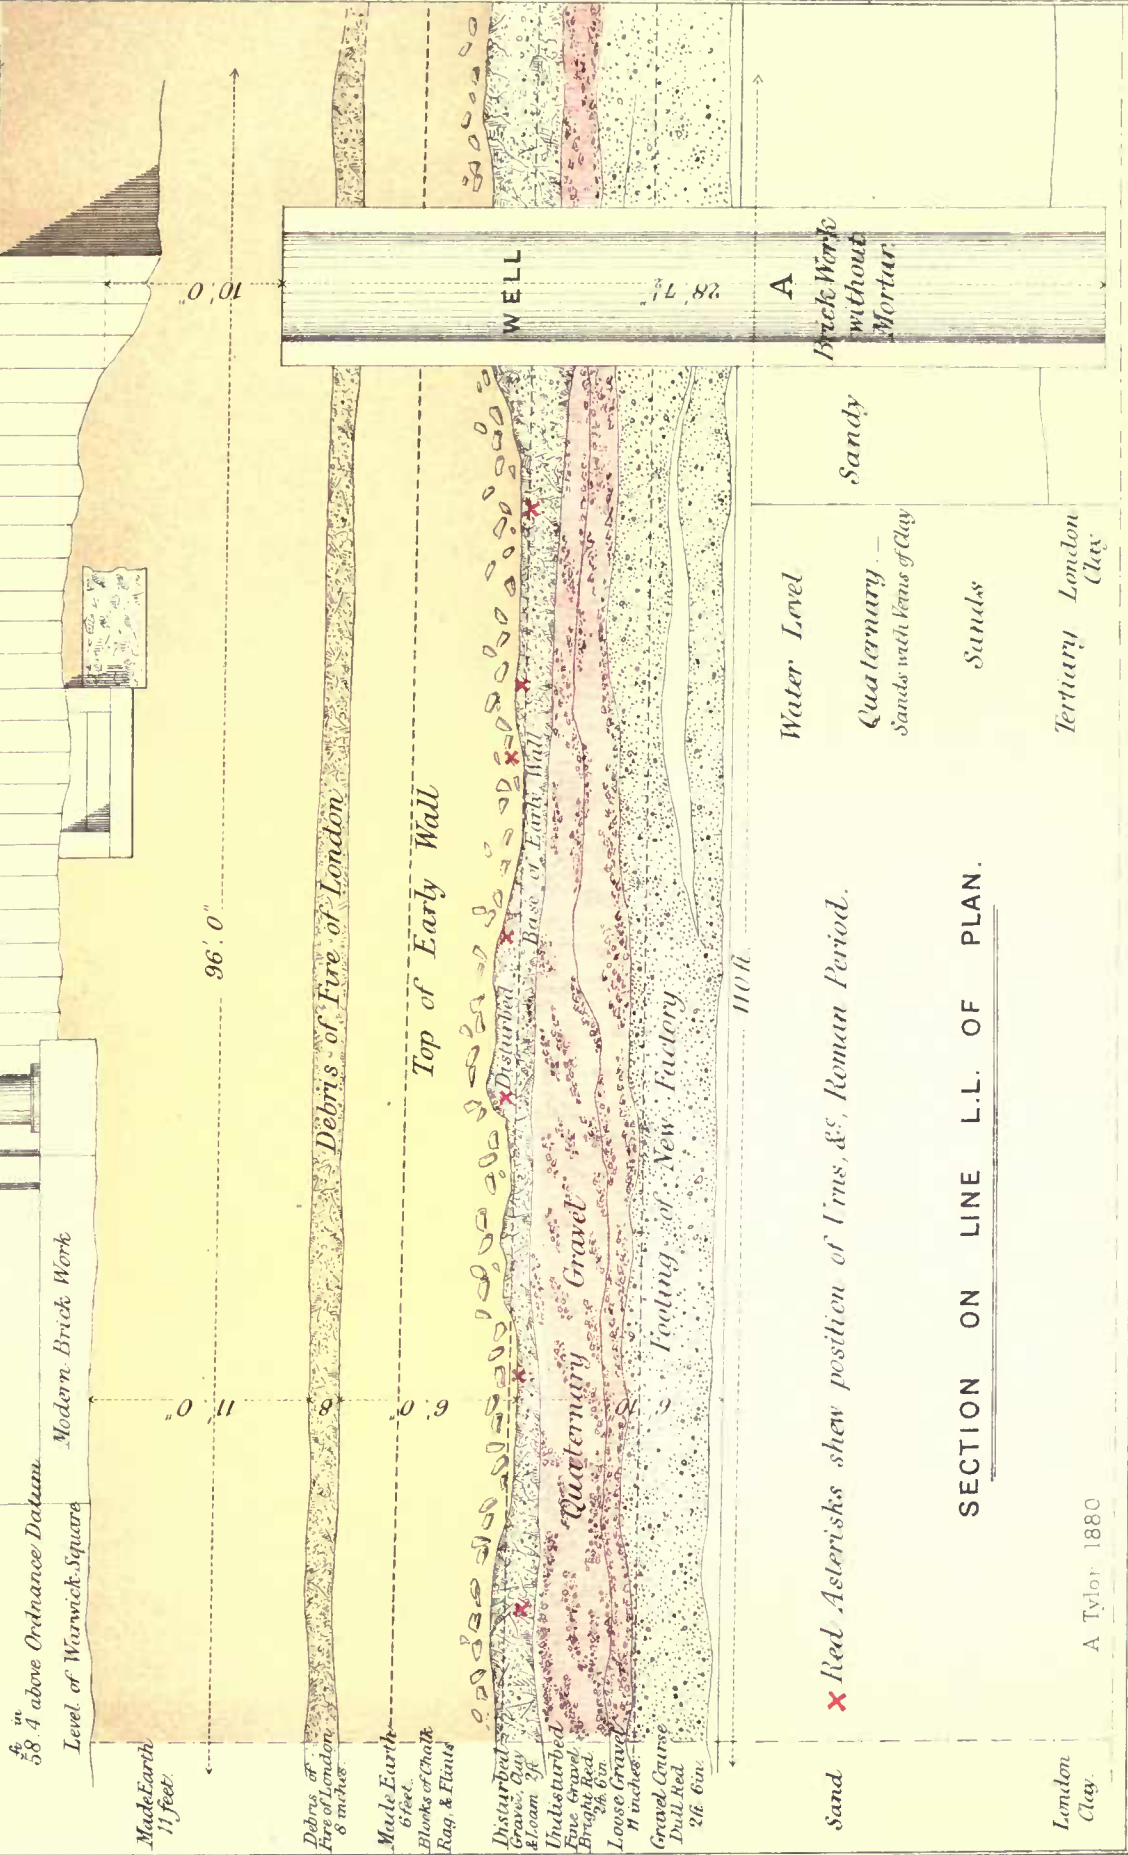 ft in
58.4 above Ordnance Datum
Level of Warwick Square
Modern Brick Work
Made Earth
11 feet.
Debris of
Fire of London
8 inches
Made Earth
6 feet.
Blocks of Chalk
Rag, & Flints
Disturbed
Gravel, Clay
& Loam 2ft
Undisturbed
Fine Gravel
Bright Red
2ft. 6in
Loose Gravel
11 inches
Gravel Coarse
Dull Red
2ft. 6in.
Sand
London
Clay.
11'. 0"
8
6'. 0"
10
6
96'. 0"
10'. 0"
Debris of Fire of London
Top of Early Wall
Disturbed
Base of Early Wall
Quaternary Gravel
Footing of New Factory
110 ft
WELL
28'. 7½"
A
Brick Work
without
Mortar
Sandy
Water Level
Quaternary —
Sands with Veins of Clay
Sands
Tertiary London
Clay
x Red Asterisks shew position of Urns, &c, Roman Period.
SECTION ON LINE L.L. OF PLAN.
A Tylor 1880